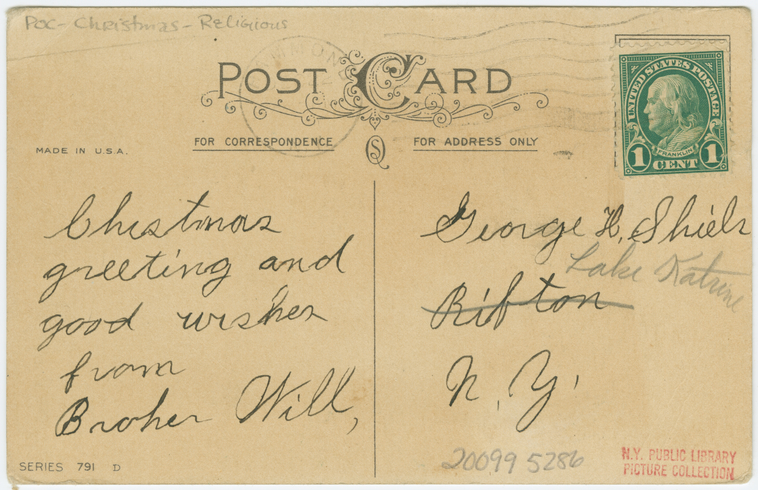 Poc - Christmas - Religious
POST CARD
FOR CORRESPONDENCE
FOR ADDRESS ONLY
MADE IN U.S.A.
UNITED STATES POSTAGE
FRANKLIN
1 CENT 1
Christmas
greeting and
good wishes
from
Broher Will,
George H. Shiels
Lake Katrine
Rifton
N.Y.
SERIES 791 D
200995286
N.Y. PUBLIC LIBRARY
PICTURE COLLECTION